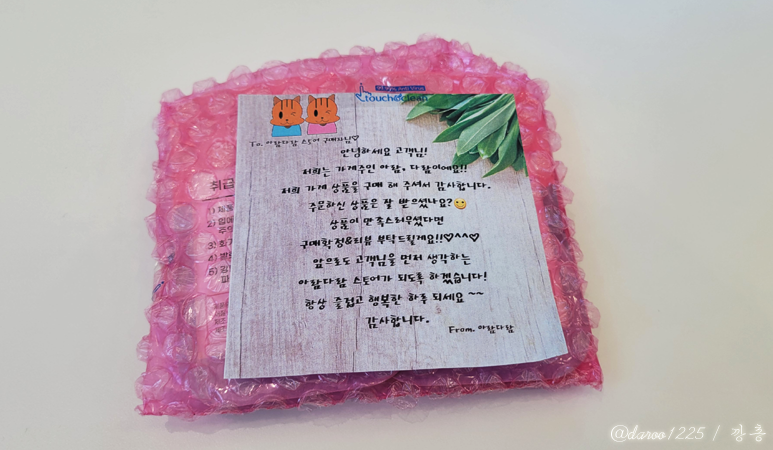 touch clean
To. 아람다람 스토어 구매자님♡
안녕하세요 고객님!
저희는 가게주인 아람, 다람이에요!!
저희 가게 상품을 구매 해 주셔서 감사합니다.
주문하신 상품은 잘 받으셨나요?
상품이 만족스러우셨다면
구매확정&리뷰 부탁드릴게요!!♡^^♡
앞으로도 고객님을 먼저 생각하는
아람다람 스토어가 되도록 하겠습니다!
항상 즐겁고 행복한 하루 되세요 ~~
감사합니다.
From. 아람다람
취급
1)
2)
3)
4)
5)
@daroo1225 / 깡총